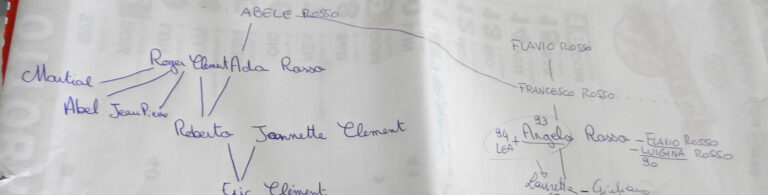 ABELE ROSSO
FLAVIO ROSSO
Roger Clément Ada Rosso
Martial
FRANCESCO ROSSO
Abel Jean Pierre
93
Roberto Jeannette Clement
94 + Angelo Rosso - FLAVIO ROSSO
LEA - LUIGINA ROSSO
90
Lauretta - Giuliano
Eric Clément